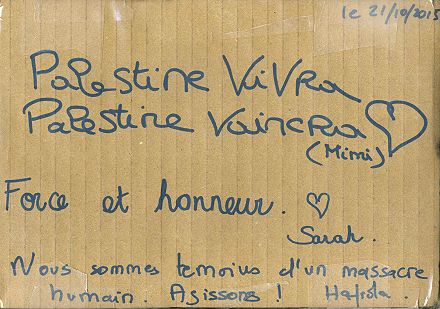 le 21/10/2015
Palestine Vivra
Palestine Vaincra
(Mimi)
Force et honneur.
Sarah.
Nous sommes temoins d'un massacre
humain. Agissons !